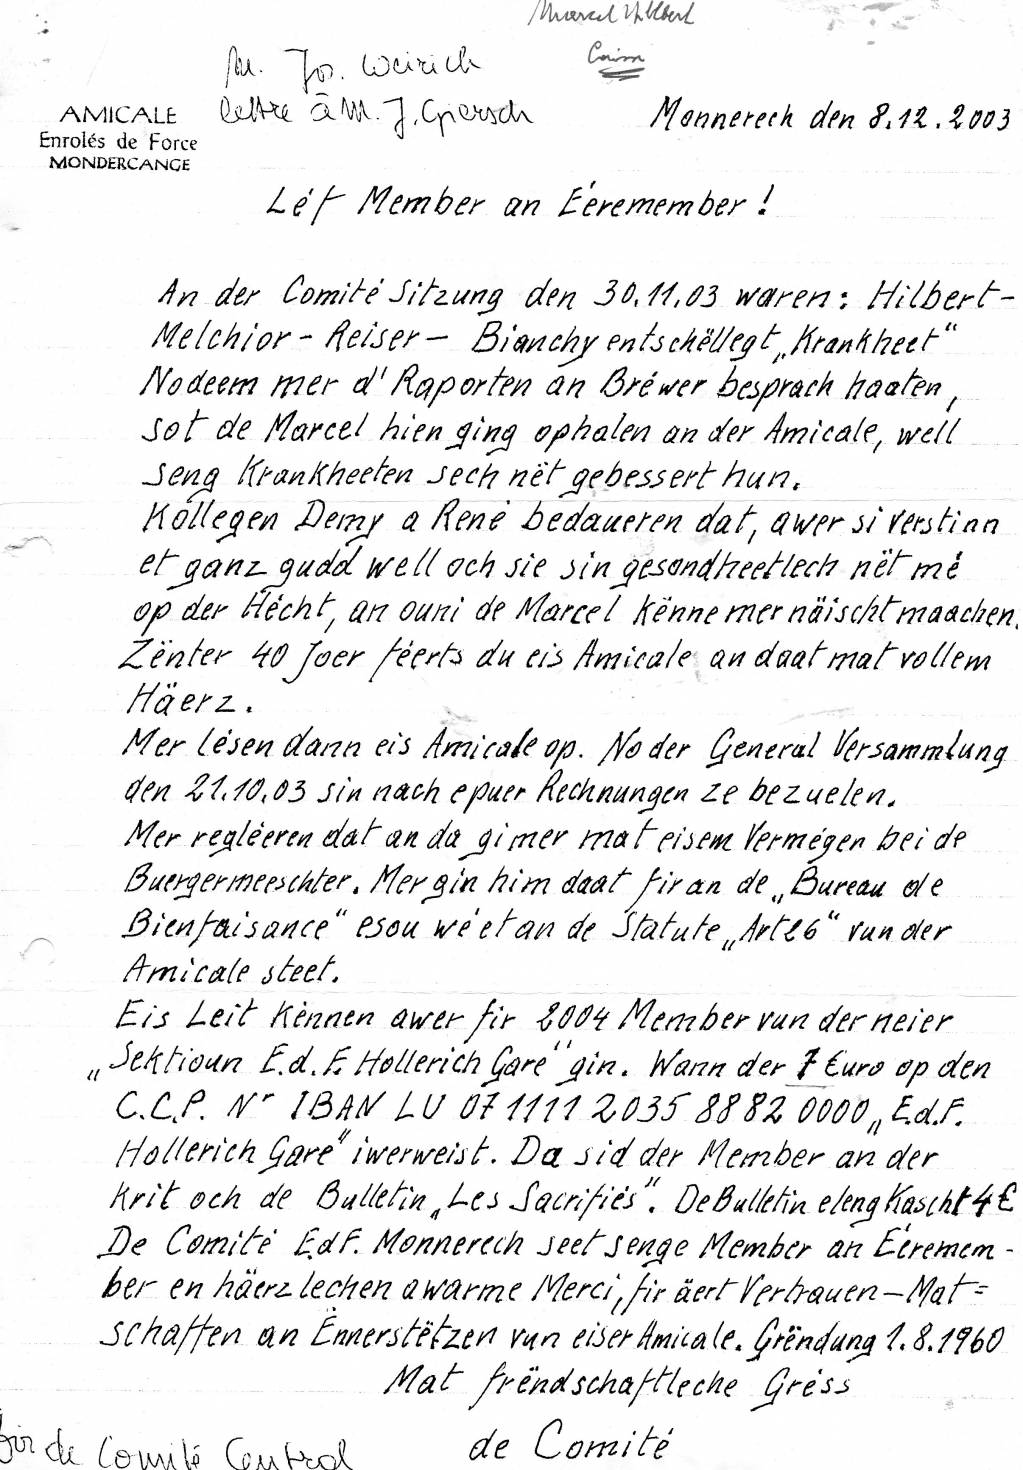 Marcel Hilbert
M. Jos. Weirich
lettre à M. J. Giersch
AMICALE
Enrolés de Force
MONDERCANGE
Monnerech den 8.12.2003
Léf Member an Éeremember!
An der Comité Sitzung den 30.11.03 waren: Hilbert-
Melchior - Reiser - Bianchy entschëllegt „Krankheet“
Nodeem mer d'Raporten an Bréwer besprach haaten,
sot de Marcel hien ging ophalen an der Amicale, well
seng Krankheeten sech nët gebessert hun.
Kollegen Demy a René bedaueren dat, awer si verstinn
et ganz gudd well och sie sin gesondheetlech nët mé
op der Hécht, an ouni de Marcel kënne mer näischt maachen.
Zënter 40 Joer féerts du eis Amicale an daat mat vollem
Häerz.
Mer lésen dann eis Amicale op. No der General Versammlung
den 21.10.03 sin nach epuer Rechnungen ze bezuelen.
Mer regléeren dat an da gi mer mat eisem Vermégen bei de
Buergermeeschter. Mer gin him daat fir an de „Bureau de
Bienfaisance“ esou wé et an de Statute „Art 26“ vun der
Amicale steet.
Eis Leit kënnen awer fir 2004 Member vun der neier
„Sektioun E.d.F. Hollerich Gare“ gin. Wann der 7 Euro op den
C.C.P. Nr IBAN LU 07 1111 2035 8882 0000 „E.d.F.
Hollerich Gare“ iwerweist. Da sid der Member an der
krit och de Bulletin „Les Sacrifiés“. De Bulletin eleng kascht 4€
De Comité E.d.F. Monnerech seet senge Member an Éeremem-
ber en häerzlechen a warme Merci, fir äert Vertrauen - Mat=
schaffen an Ënnerstëtzen vun eiser Amicale. Grëndung 1.8.1960
Mat frëndschaftleche Gréss
de Comité
fir de Comité Central